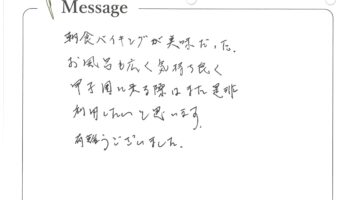 Message
朝食バイキングが美味だった.
お風呂も広く気持ち良く
甲子園に来る際はまた是非
利用したいと思います.
有難うございました.